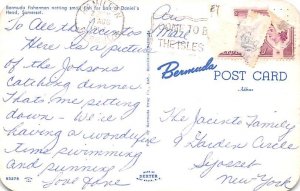 Bermuda fishermen netting small fish for bait at Daniel's Head, Somerset.
To All the Jacintos
Here Is a picture
of the Johsons
catching dinner
Thats me sitting
down - We're
having a wonderful
time swimming
and sunning
Love Jane
Air
Mail
THE ISLES
Bermuda
POST CARD
Address
The Jacinto Family
9 Garden Circle
Syosset
New York
DEXTER